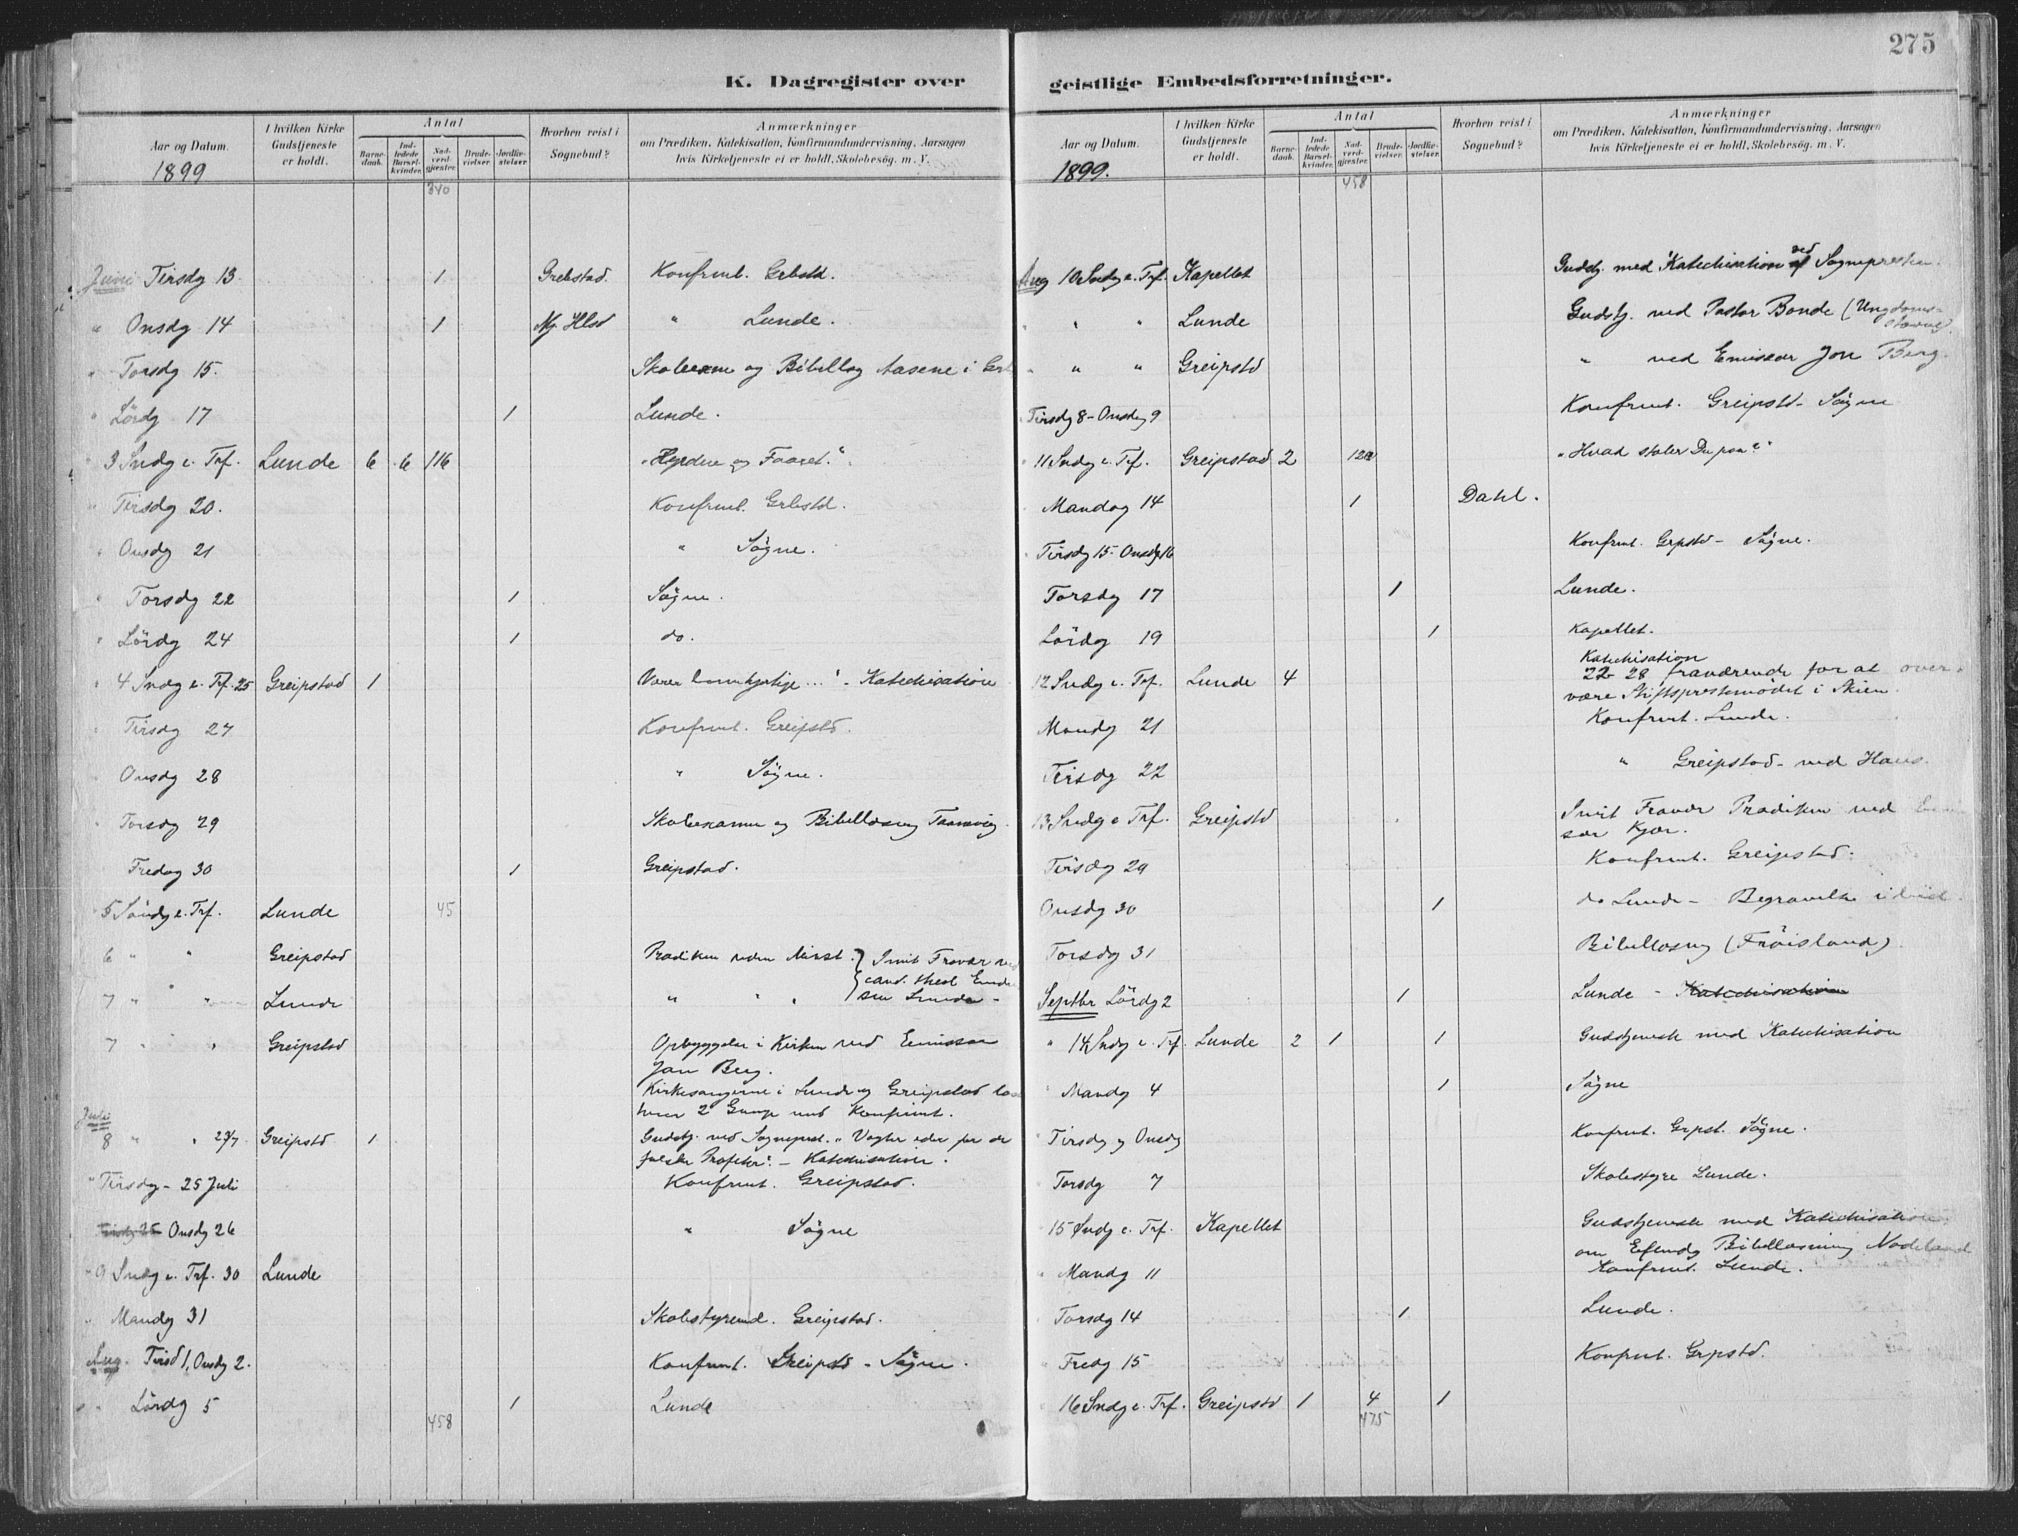 275
K. Dagregister over
Aar og Datum.
1899
I hvilken Kirke Gudstjeneste er holdt.
Antal
Barnedaab.
Indledede Barselkvinder.
Nadverdgjester.
Brudevielser.
Jordfæstelser.
Hvorhen reist i Sognebud?
Anmærkninger
om Prædiken, Katekisation, Konfirmandundervisning, Aarsagen
hvis Kirketjeneste ei er holdt, Skolebesög. m. V.
340
Juni Tirsdg 13 1 Grebstad. Konfrmt. Grbstd.
" Onsdg 14 1 " Lunde.
" Torsdg 15. og Aasene i
" Lördg 17 1 Lunde.
" 3 Sndg e. Trf. Lunde 6 6 116 "Hyrden og Faaret."
" Tirsdg 20. Konfrmt. Grbstd.
" Onsdg 21 " Sögne.
" Torsdg 22 1 Sögne.
" Lördg 24 1 do.
" 4 Sndg e. Trf. 25 Greipstad 1 Værer barmhjertige ..." - Katechisation
" Tirsdg 27 Konfrmt. Greipstd.
" Onsdg 28 " Sögne.
" Torsdg 29 Skoleexamen og
" Fredag 30 1 Greipstad.
5 Söndg e. Trf. Lunde 45
6 " " Greipstad Prædiken uden
7 " " Lunde " " "
7 " " Greipstad Opbyggelse i Kirken ved Emissær
Jon Berg.
Kirkesangerne i Lunde og Greipstad
2 Gange med Konfrmt.
Juli
8 " " 23/7 Greipstd 1 Gudstj. ved Sogneprest. "Vogter eder for de
falske Profeter". - Katechisation.
" Tirsdg - 25 Juli Konfrmt. Greipstad.
Onsdg 26 " Sögne
" 9 Sndg e. Trf. 30 Lunde
" Mandg 31 Greipstad.
Aug. Tirsd 1, Onsdg 2. Konfrmt. Greipstd - Sögne.
" Lördg 5 1 Lunde
458
geistlige Embedsforretninger.
Aar og Datum.
1899.
I hvilken Kirke Gudstjeneste er holdt.
Antal
Barnedaab.
Indledede Barselkvinder.
Nadverdgjester.
Brudevielser.
Jordfæstelser.
Hvorhen reist i Sognebud?
Anmærkninger
om Prædiken, Katekisation, Konfirmandundervisning, Aarsagen
hvis Kirketjeneste ei er holdt, Skolebesög. m. V.
458
Aug 10 Sndg e. Trf. Kapellet Gudstj. med Katechisation ved Sognepresten.
" " " Lunde Gudstj. ved Pastor Bonde (Ungdoms-
" " " Greipstd " ved Emissær Jon Berg.
Tirsdg 8 - Onsdg 9 Konfrmt. Greipstd - Sögne
" 11 Sndg e. Trf. Greipstad 2 "Hvad stoler Du paa?"
" Mandag 14 1 Dahl.
" Tirsdg 15 - Onsdg 16 Konfrmt. Grpstd - Sögne.
Torsdg 17 1 Lunde.
Lördg 19 1 Kapellet.
12 Sndg e. Trf. Lunde 4 Katechisation
22-28 fraværende for at over-
være Stiftsprestemödet i Skien.
Mandg 21 Konfrmt. Lunde.
Tirsdg 22 " Greipstad - ved Hans.
13 Sndg e. Trf. Greipstd I mit Fravær Prædiken ved
sær Kjær.
Tirsdg 29 Konfrmt. Greipstad.
Onsdg 30 1 do Lunde - Begravelse
Torsdg 31 Bibellæsng (Fröisland)
Septbr Lördg 2 1 Lunde - Katechisation
" 14 Sndg e. Trf. Lunde 2 1 1 Gudstjeneste med Katechisation
" Mandg 4 1 Sögne
" Tirsdg og Onsdg Konfrmt. Grpst. Sögne.
Torsdg 7 Skolestyre Lunde.
15 Sndg e. Trf. Kapellet Gudstjeneste med Katechisation
om Bibellæsning Nodeland
" Mandg 11 Konfrmt. Lunde.
" Torsdg 14 1 Lunde.
" Fredg 15 Konfrmt. Grpstd.
16 Sndg e. Trf. Greipstd 1 4 1
475